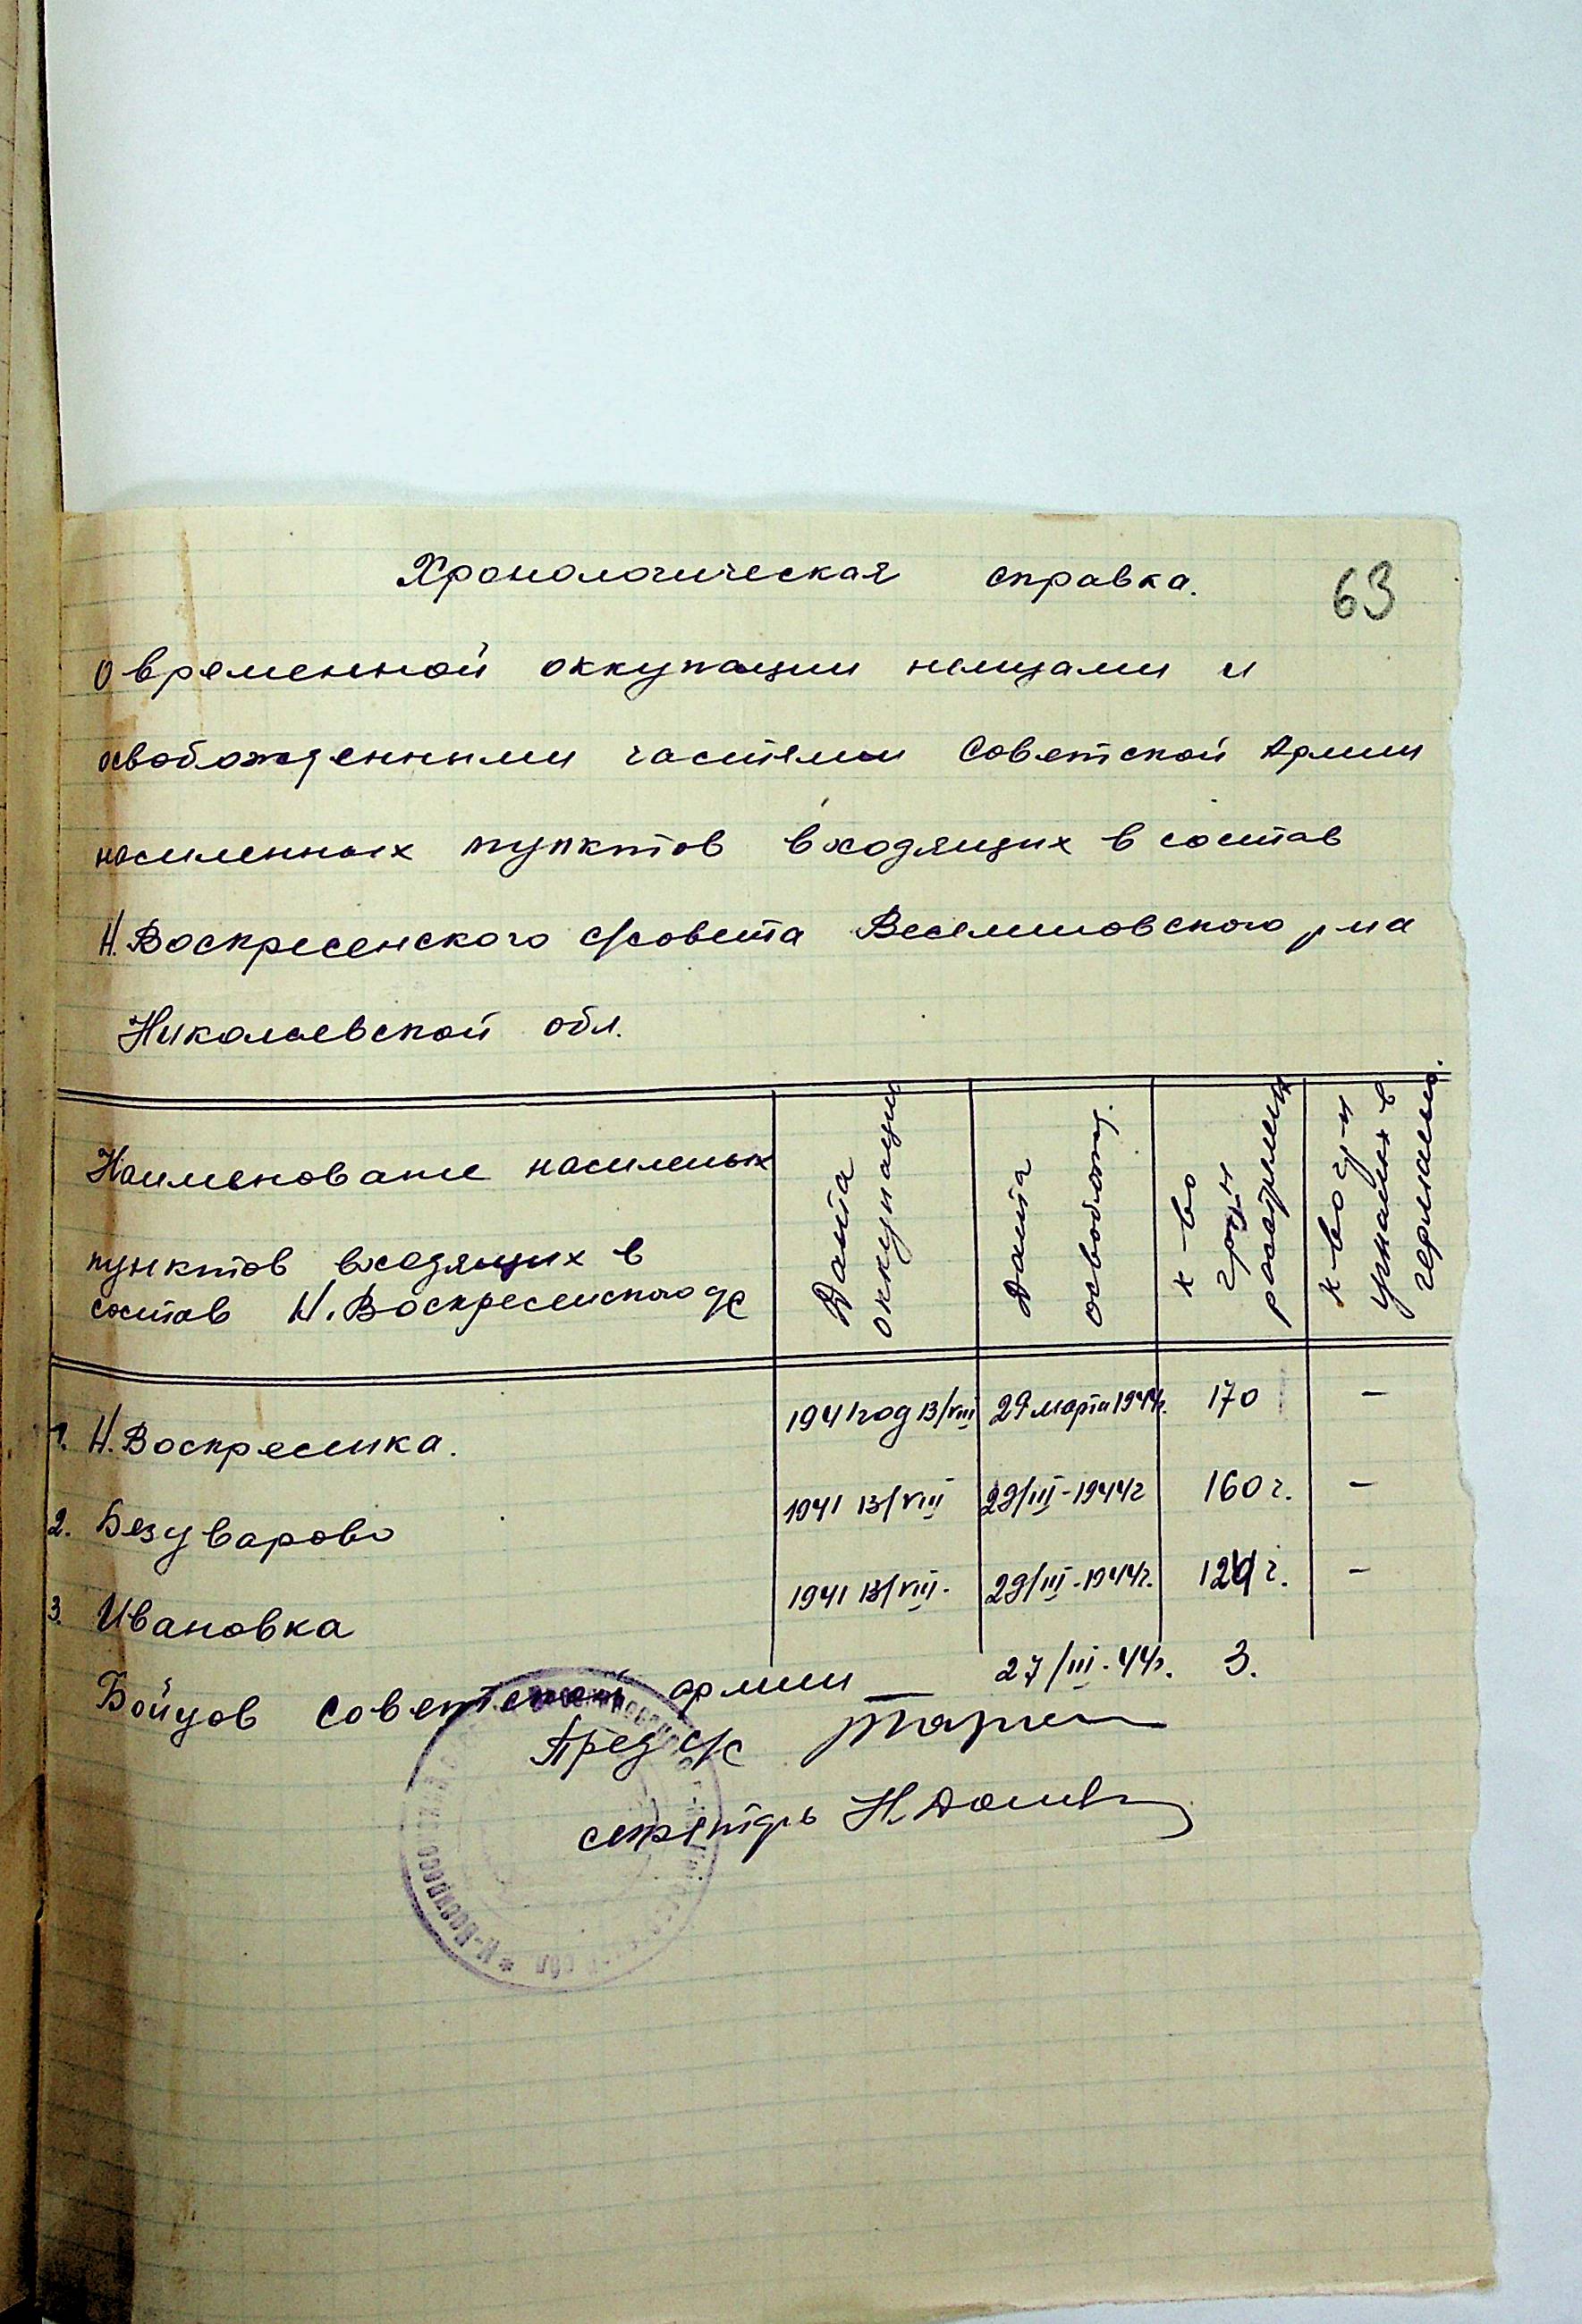 63
Хронологическая справка.
о временной оккупации немцами и
освобожденными частями Советской Армии
населенных пунктов входящих в состав
Н. Воскресенского с/совета Веселиновского р-на
Николаевской обл.
Наименование населеных
пунктов входящих в
состав Н. Воскресенского с/с
Дата
оккупации
Дата
освобожд.
к-во
гр-н
расстрелян
к-во гр-н
угнаных в
германию.
1. Н. Воскресенка. 1941 год 13/VIII 29 марта 1944г. 170 –
2. Безуварово 1941 13/VIII 29/III-1944г 160 г. –
3. Ивановка 1941 13/VIII. 29/III-1944г. г. –
Бойцов Советской армии — 27/III-44г. 3.
Пред с/с
секретарь Н.
* Н-Воскресе обл